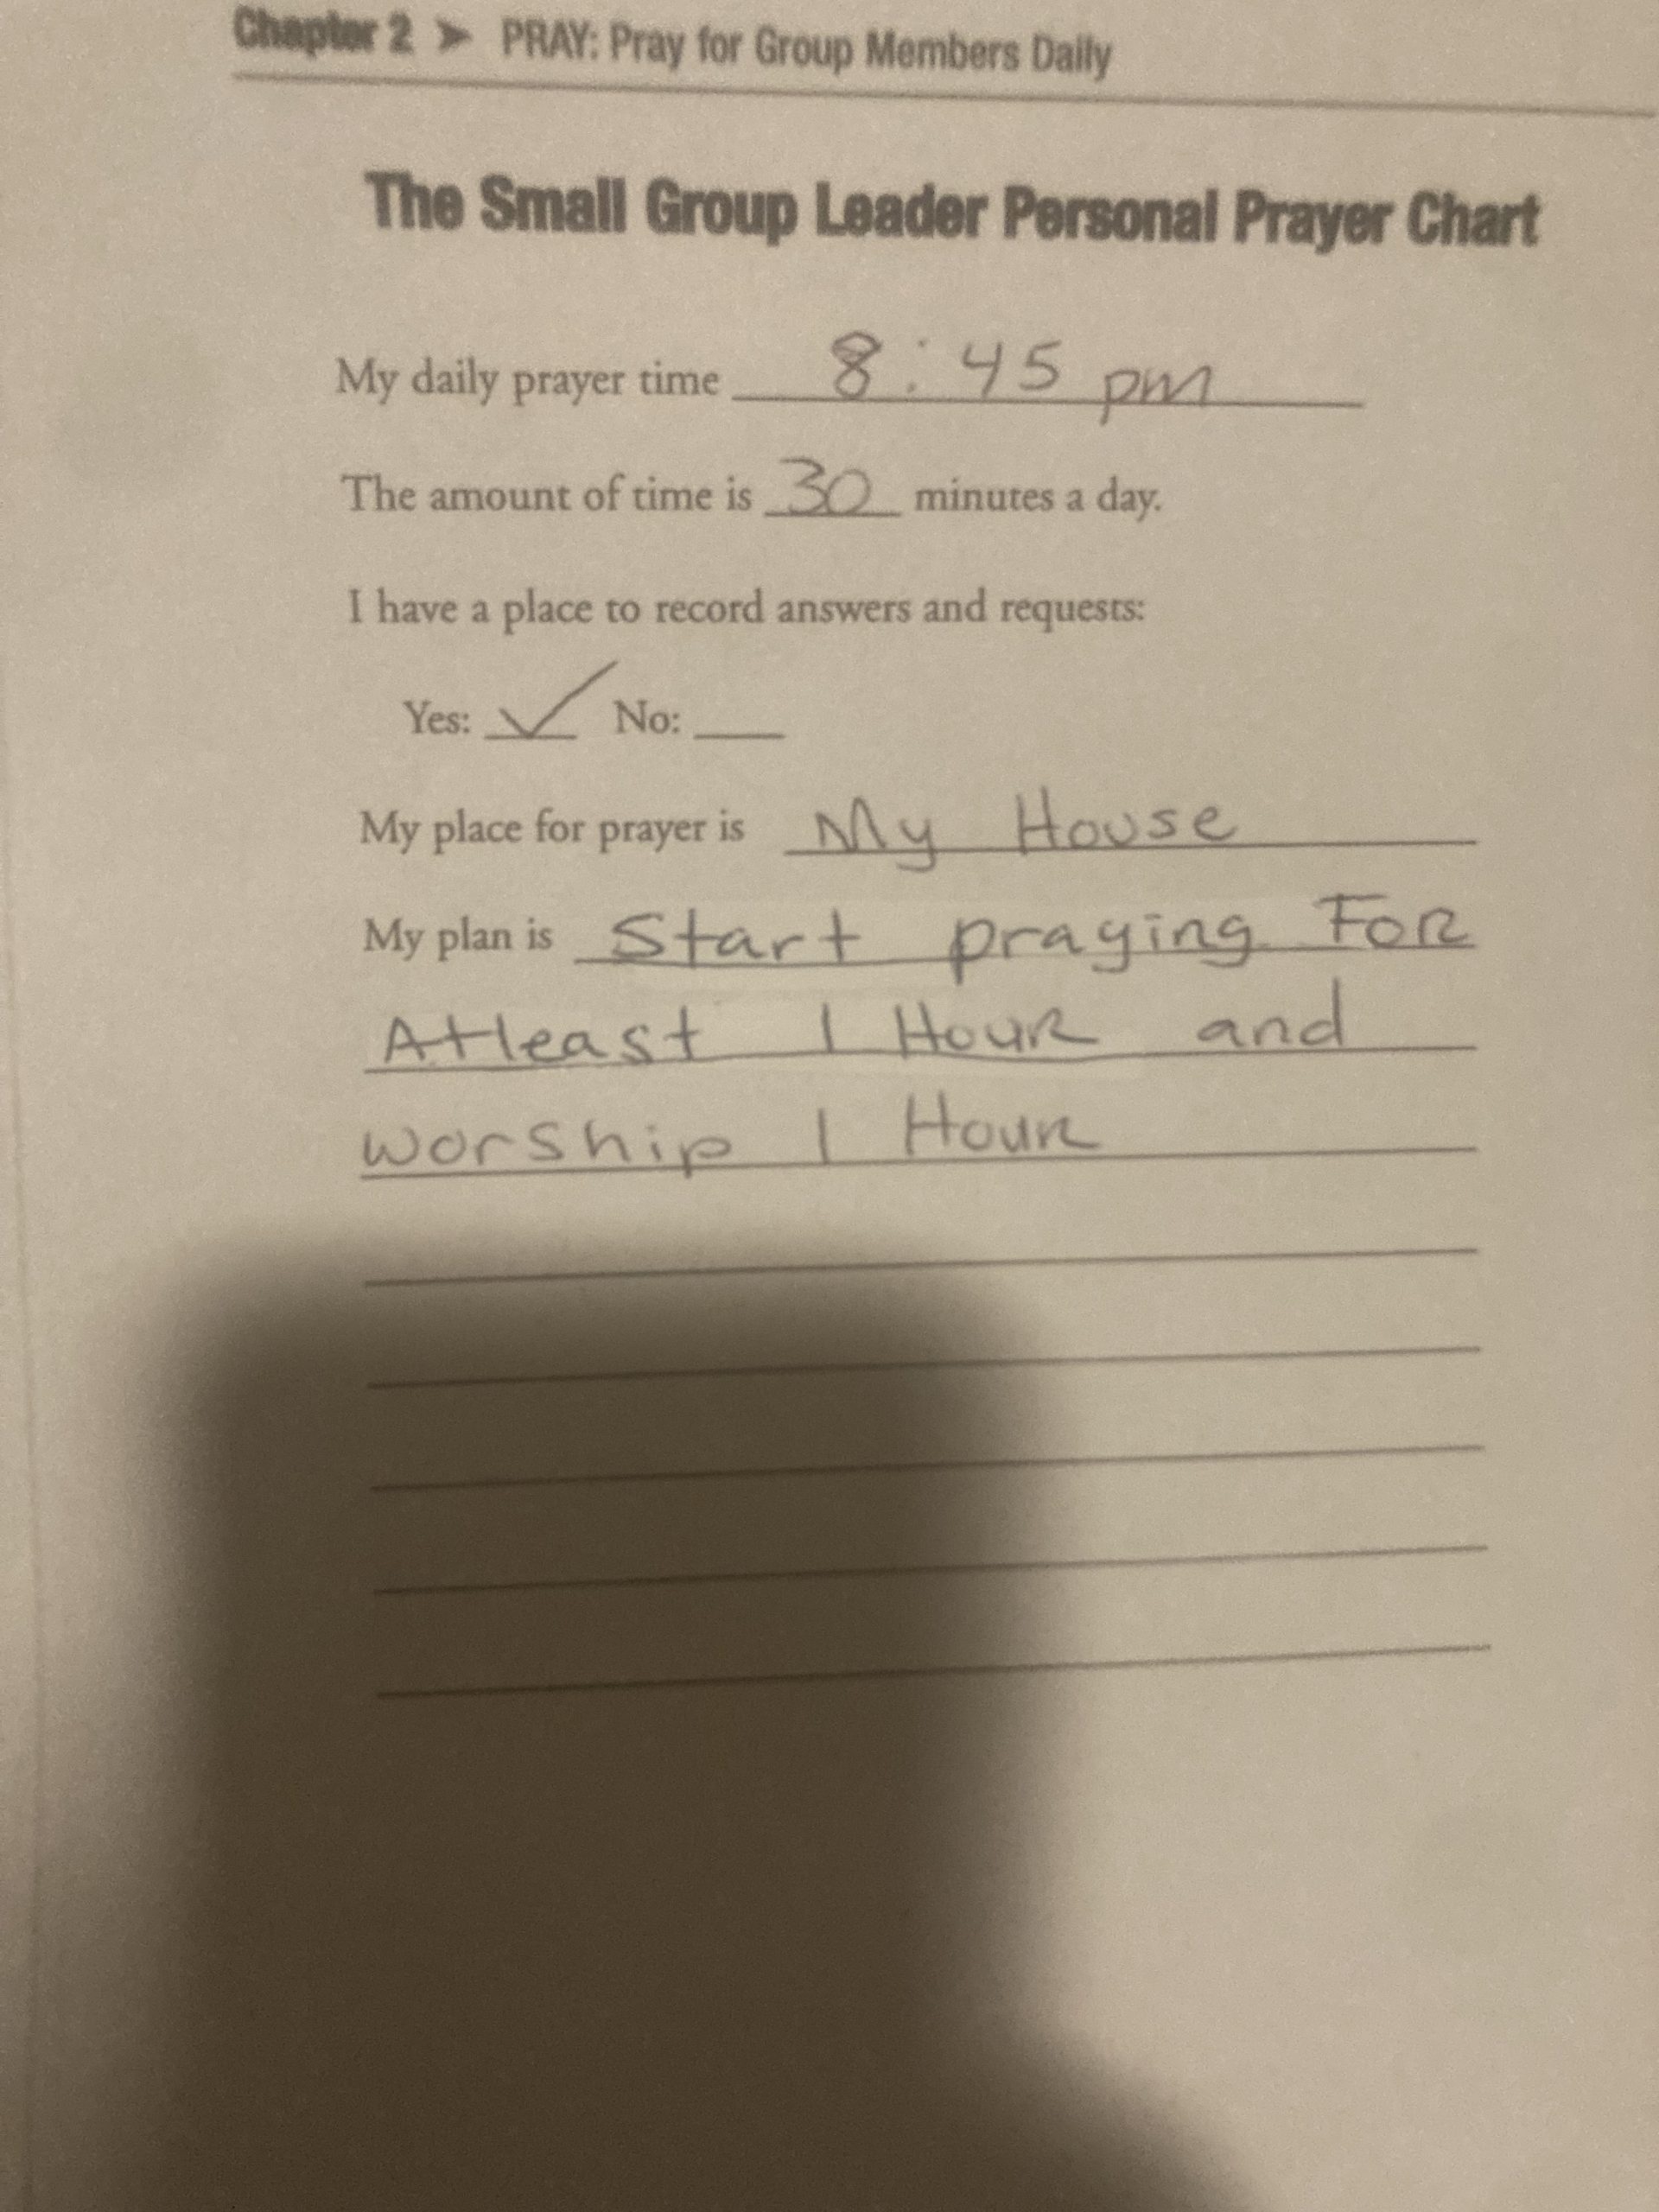 Chapter 2 ➤ PRAY: Pray for Group Members Daily
The Small Group Leader Personal Prayer Chart
My daily prayer time 8:45 pm
The amount of time is 30 minutes a day.
I have a place to record answers and requests:
Yes: ✓ No: ___
My place for prayer is My House
My plan is Start praying FoR
Atleast 1 HouR and
worship 1 HouR